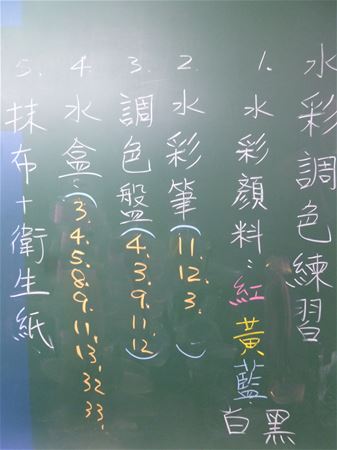 水彩調色練習
1. 水彩顏料:紅黃藍
白黑
2. 水彩筆(11. 12. 3. )
3. 調色盤(4. 3. 9. 11. 12)
4. 水盒:(3. 4. 5. 8. 9. 11. 13. 32 33.
5. 抹布+衛生紙